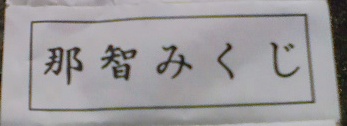 那智みくじ